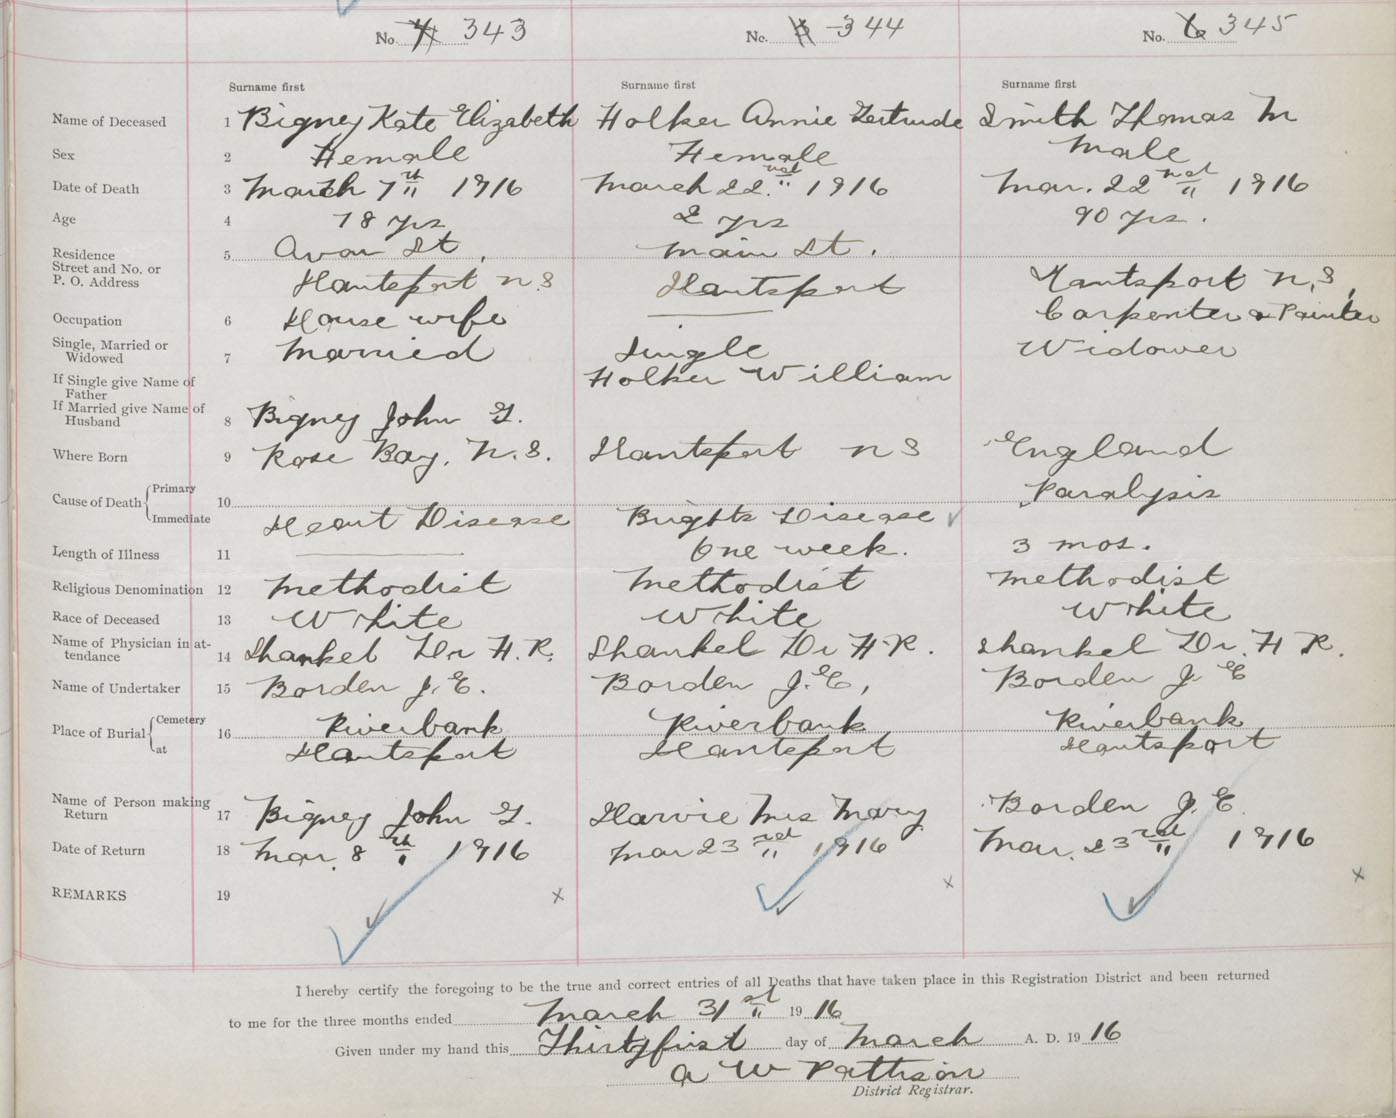 No. 343 No. 344 No. 345
Surname first Surname first Surname first
Name of Deceased 1 Bigney Kate Elizabeth Holker Annie Gertrude Smith Thomas M
Sex 2 Female Female Male
Date of Death 3 March 7th 1916 March 22nd 1916 Mar. 22nd 1916
Age 4 78 yrs 2 yrs 90 yrs.
Residence 5 Avon St, Main St.
Street and No. or
P. O. Address Hantsport N.S Hantsport Hantsport N.S,
Occupation 6 House wife Carpenter & Painter
Single, Married or
Widowed 7 Married Single Widower
If Single give Name of
Father Holker William
If Married give Name of
Husband 8 Bigney John G.
Where Born 9 Rose Bay, N.S. Hantsport N S England
Cause of Death Primary 10 Paralysis
Immediate Heart Disease Brights Disease
Length of Illness 11 One week. 3 mos.
Religious Denomination 12 Methodist Methodist Methodist
Race of Deceased 13 White White White
Name of Physician in at-
tendance 14 Shankel Dr H.R. Shankel Dr H R. Shankel Dr. H R.
Name of Undertaker 15 Borden J. E. Borden J. E, Borden J. E
Place of Burial Cemetery 16 Riverbank Riverbank Riverbank
at Hantsport Hantsport Hantsport
Name of Person making
Return 17 Bigney John G. Harvie Mrs Mary Borden J. E.
Date of Return 18 Mar. 8th 1916 Mar 23rd 1916 Mar. 23rd 1916
REMARKS 19 x x x
I hereby certify the foregoing to be the true and correct entries of all Deaths that have taken place in this Registration District and been returned
to me for the three months ended March 31st 19 16
Given under my hand this Thirtyfirst day of March A. D. 19 16
A W Pattison
District Registrar.